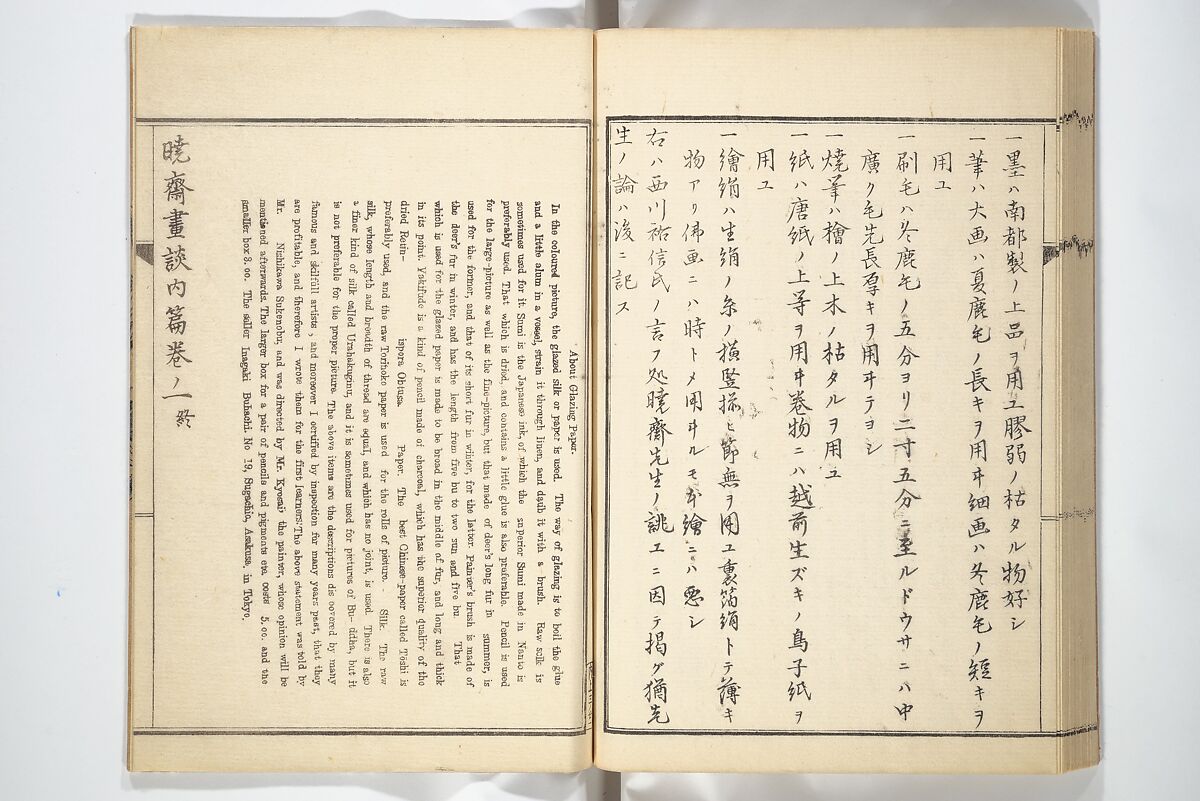 一墨ハ南都製ノ上品ヲ用ユ膠弱ノ枯タル物好シ
一筆ハ大画ハ夏鹿毛ノ長キヲ用ヰ細画ハ冬鹿毛ノ短キヲ
用ユ
一刷毛ハ冬鹿毛ノ五分ヨリ二寸五分ニ至ルドウサニハ中
廣ク毛先長厚キヲ用ヰテヨシ
一燒筆ハ檜ノ上木ノ枯タルヲ用ユ
一紙ハ唐紙ノ上等ヲ用ヰ巻物ニハ越前生ズキノ鳥子紙ヲ
用ユ
一繪絹ハ生絹ノ糸ノ横竪揃ヒ節無ヲ用ユ裏箔絹トテ薄キ
物アリ佛画ニハ時トメ用ヰルモ本繪ニハ悪シ
右ハ西川祐信氏ノ言フ処曉齋先生ノ誂エニ因テ掲グ猶先
生ノ論ハ後ニ記ス
About Glazing Paper.
In the coloured picture, the glazed silk or paper is used. The way of glazing is to boil the glue
and a little alum in a vessel, strain it through linen, and daub it with a brush. Raw silk is
sometimes used for it. Sumi is the Japanese ink, of which the superior Sumi made in Nanto is
preferably used. That which is dried, and contains a little glue is also preferable. Pencil is used
for the large-picture as well as the fine-picture, but that made of deer's long fur in summer, is
used for the former, and that of its short fur in winter, for the latter. Painter's brush is made of
the deer's fur in winter, and has the length from five bu to two sun and five bu That
which is used for the glazed paper is made to be broad in the middle of fur, and long and thick
in its point. Yakifude is a kind of pencil made of charcoal, which has the superior quality of the
dried Retin- ispora Obtusa. Paper. The best Chinese-paper called Toshi is
preferably used, and the raw Torinoko paper is used for the rolls of picture. Silk. The raw
silk, whose length and breadth of thread are equal, and which has no joint, is used. There is also
a finer kind of silk called Urahakuginu, and it is sometimes used for pictures of Bu- ddha, but it
is not preferable for the proper picture. The above items are the descriptions dis covered by many
famous and skilfull artists, and moreover I certified by inspection for many years past, that they
are profitable, and therefore I wrote them for the first learners. The above statement was told by
Mr. Nishikawa Sukenobu, and was directed by Mr. Kyosai the painter, whose opinion will be
mentioned afterwards. The larger box for a pair of pencils and pagments eta. costs 5. oo. and the
smaller box 3. oo. The saller Inagaki Buhachi. No 19, Sugachio, Asakusa, in Tokyo.
曉齋畫談内篇巻ノ一終